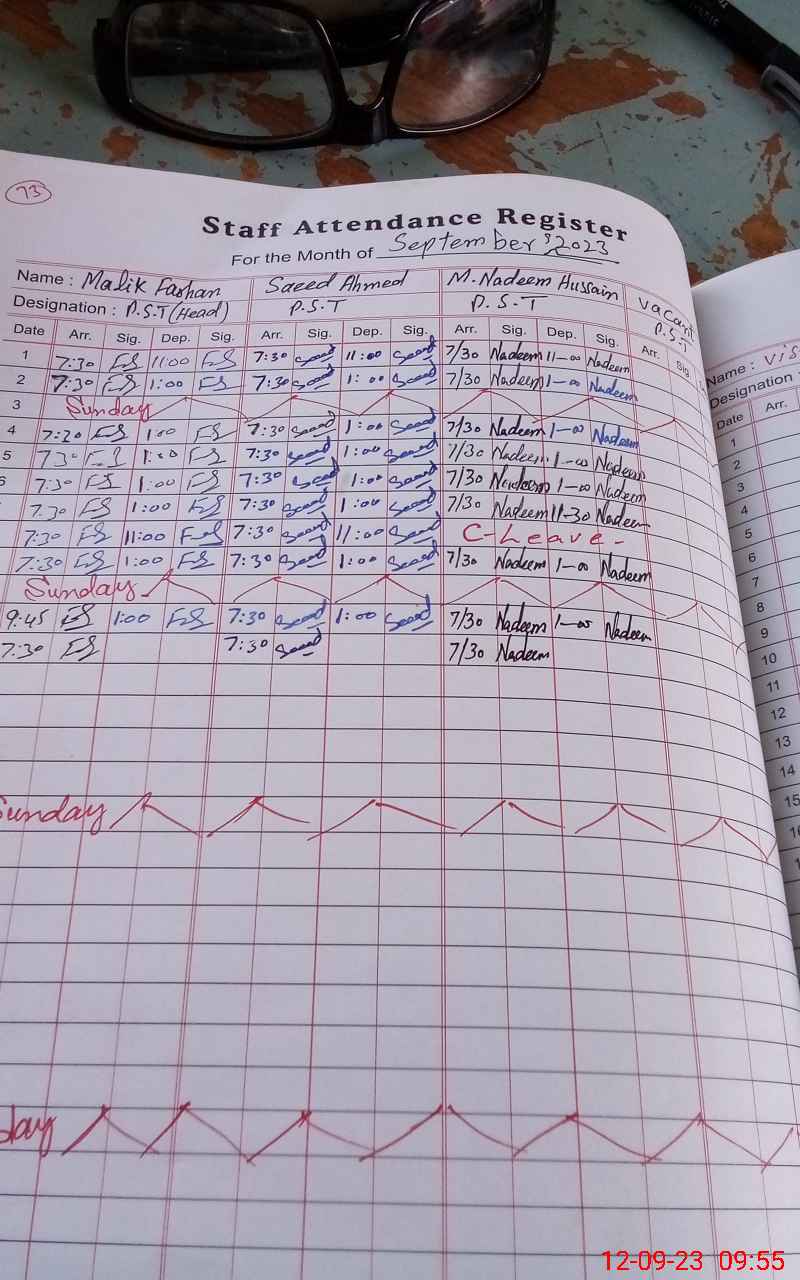 73
Staff Attendance Register
For the Month of September, 2023
Name : Malik Farhan Saeed Ahmed M. Nadeem Hussain Vacant
Designation : P.S.T (Head) P.S.T P.S.T P.S.T
Date Arr. Sig. Dep. Sig. Arr. Sig. Dep. Sig. Arr. Sig. Dep. Sig. Arr. Sig.
1 7:30 11:00 7:30 Saeed 11:00 Saeed 7/30 Nadeem 11-00 Nadeem
2 7:30 1:00 7:30 Saeed 1:00 Saeed 7/30 Nadeem 1-00 Nadeem
3 Sunday
4 7:30 1:00 7:30 Saeed 1:00 Saeed 7/30 Nadeem 1-00 Nadeem
5 7:30 1:00 7:30 Saeed 1:00 Saeed 7/30 Nadeem 1-00 Nadeem
6 7:30 1:00 7:30 Saeed 1:00 Saeed 7/30 Nadeem 1-00 Nadeem
7:30 1:00 7:30 Saeed 1:00 Saeed 7/30 Nadeem 11-30 Nadeem
7:30 11:00 7:30 Saeed 11:00 Saeed C-Leave-
7:30 1:00 7:30 Saeed 1:00 Saeed 7/30 Nadeem 1-00 Nadeem
Sunday
9:45 1:00 7:30 Saeed 1:00 Saeed 7/30 Nadeem 1-00 Nadeem
7:30 7:30 Saeed 7/30 Nadeem
Sunday
day
Name :
Designation
Date Arr.
1
2
3
4
5
6
7
8
9
10
11
12
13
14
15
16
12-09-23 09:55